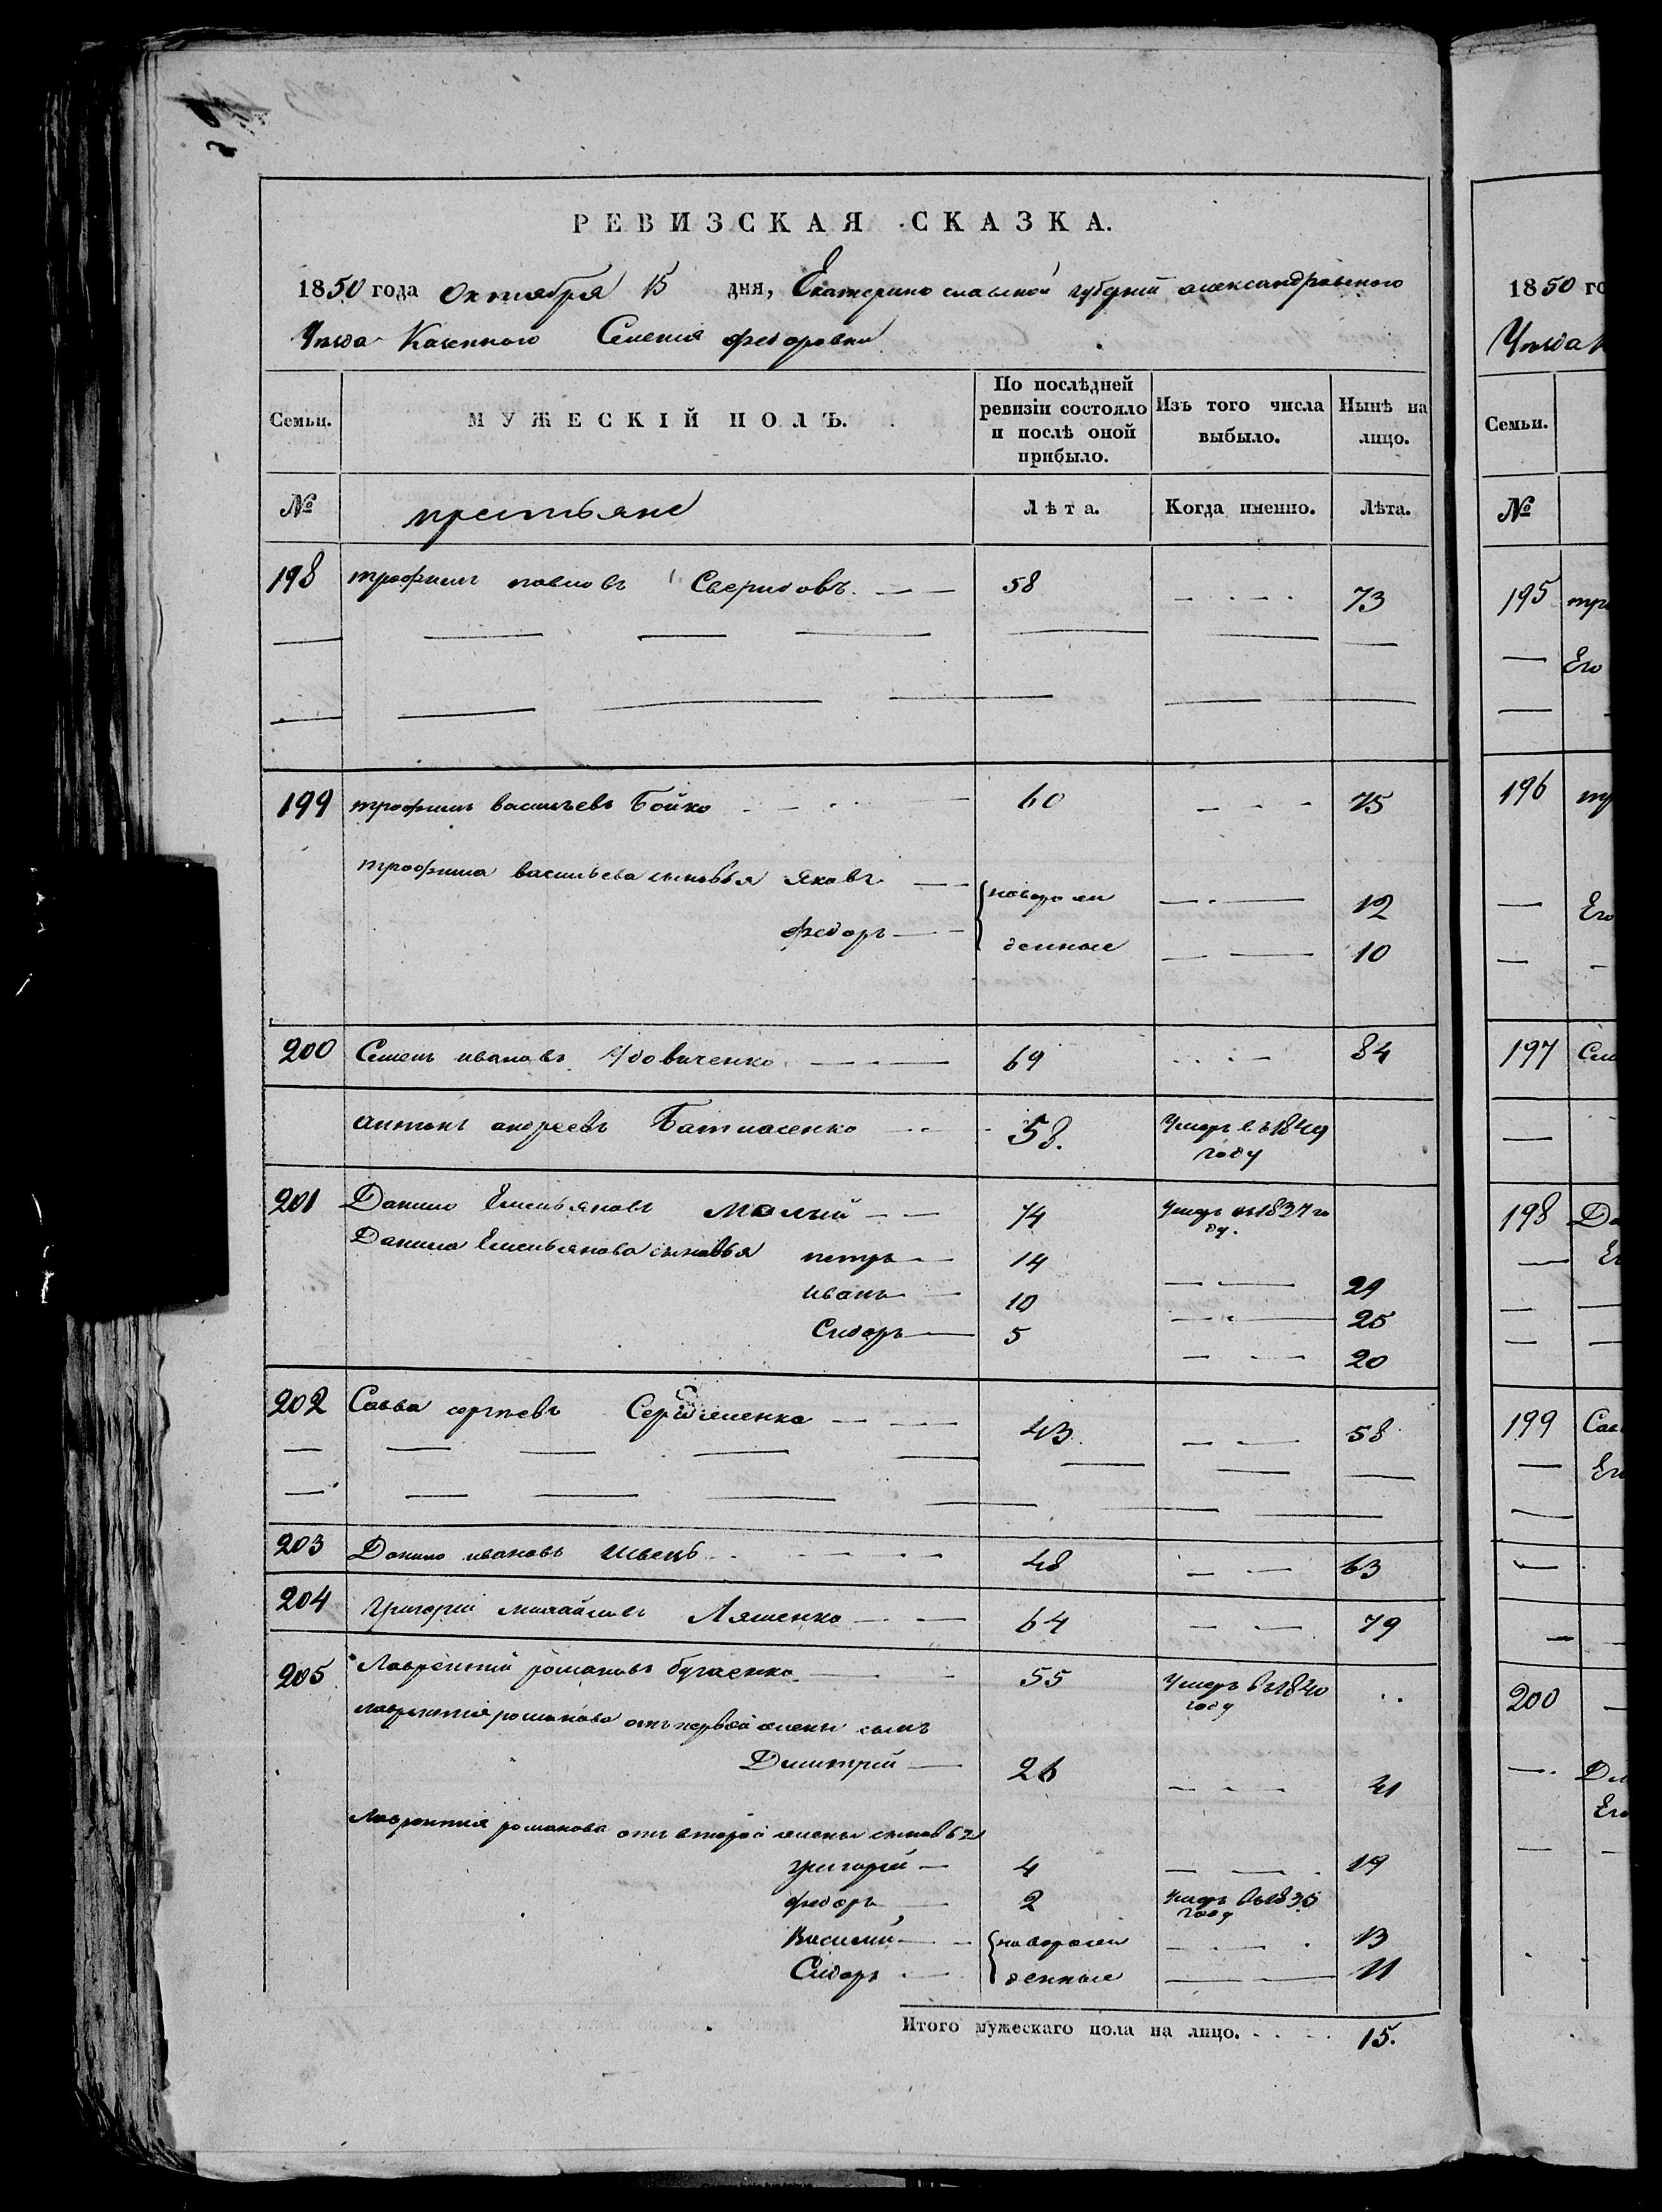 РЕВИЗСКАЯ СКАЗКА.
1850 года Октября 15 дня, Екатеринославской губернии александровского
Уезда Казенного Селения федоровки
Семьи.
МУЖЕСКІЙ ПОЛЪ.
По послѣдней ревизіи состояло и послѣ оной прибыло.
Изъ того числа выбыло.
Нынѣ на лицо.
№
крестьяне
Лѣта.
Когда именно.
Лѣта.
198 трофимъ павловъ Свиридовъ 58 73
199 трофимъ васильевъ Бойко 60 75
трофима васильева сыновья Яковъ новорож 12
федоръ денные 10
200 Семенъ ивановъ Удовиченко 69 84
антонъ андреевъ 58. Умеръ въ 1849
году
201 Данило Емельяновъ малый 74 Умеръ въ 1837 го
ду.
Данила Емельянова сыновья петръ 14 29
иванъ 10 25
Сидоръ 5 20
202 Савва сергѣевъ 43 58
203 Данило ивановъ Швецъ 48 63
204 григорий михайловъ Ляшенко 64 79
205 Лаврентий романовъ бугаенко 55 Умеръ въ 1840
году
лаврентия романова отъ первой жены сынъ
Дмитрий 26 41
Лаврентия романова отъ второй жены сыновья
григорий 4 19
федоръ 2 умеръ въ 1835
году
Василий новорож 13
Сидоръ денные 11
Итого мужескаго пола на лицо. 15.
1850 го
Уезда
Семьи.
№
195 тр
Его
196 тр
Его
197 Сем
198 Да
Ег
199 Сав
Его
200
Дм
Его